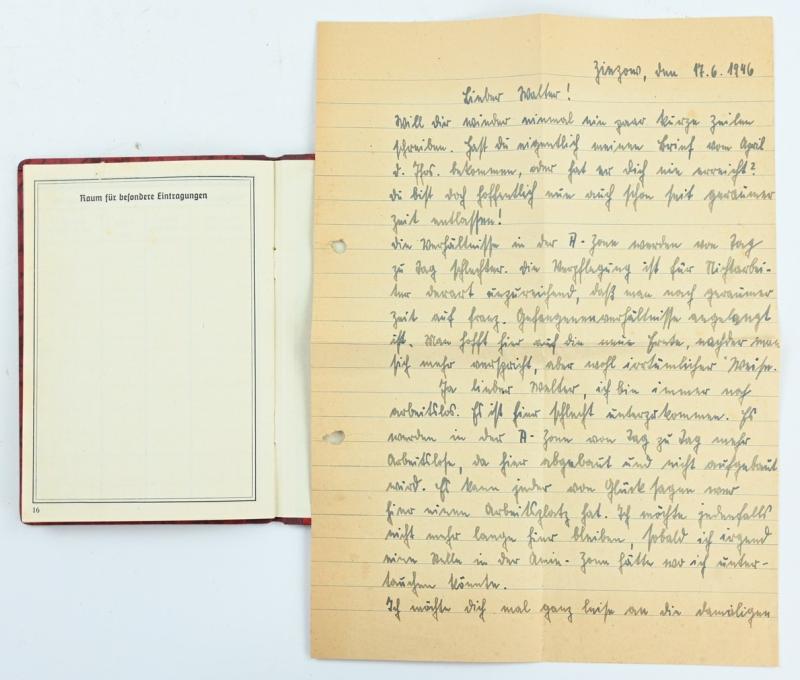 Raum für besondere Eintragungen
16
den 17.6.1946
Lieber Walter!
Will dir wieder einmal ein paar kurze Zeilen
schreiben. Hast du eigentlich meinen Brief vom April
d. Jhrs. bekommen, oder hat er dich nie erreicht?
du bist doch hoffentlich nun auch schon seit geraumer
Zeit entlassen!
die Verhältnisse in der R-Zone werden von Tag
zu Tag schlechter. die Verpflegung ist für Nichtarbei-
ter derart unzureichend, daß man nach geraumer
Zeit auf franz. Gefangenenverhältnisse angelangt
ist. Man hofft hier auf die neue Ernte, nachdem man
sich mehr verspricht, aber wohl irrtümlicher Weise.
Ja lieber Walter, ich bin immer noch
arbeitslos. Es ist hier schlecht unterzukommen. Es
werden in der R-Zone von Tag zu Tag mehr
Arbeitslose, da hier abgebaut und nicht aufgebaut
wird. Es kann jeder von Glück sagen wer
hier einen Arbeitsplatz hat. Ich möchte jedenfalls
nicht mehr lange hier bleiben, sobald ich irgend
eine Stelle in der Zone hätte wo ich unter-
tauchen könnte.
Ich möchte dich mal ganz leise an die damaligen